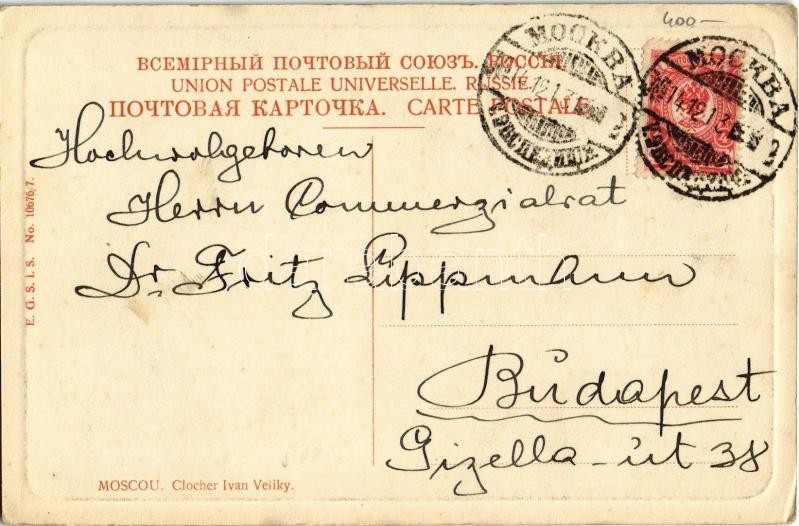 400-
ВСЕМІРНЫЙ ПОЧТОВЫЙ СОЮЗЪ. РОССІЯ.
UNION POSTALE UNIVERSELLE. RUSSIE.
ПОЧТОВАЯ КАРТОЧКА. CARTE POSTALE
МОСКВА
МОСКВА
Hochwohlgeboren
Herrn Commerzialrat
Dr. Fritz Lippmann
Budapest
Gizella-út 38
E. G. S. i. S. No. 10676/7.
MOSCOU. Clocher Ivan Veliky.